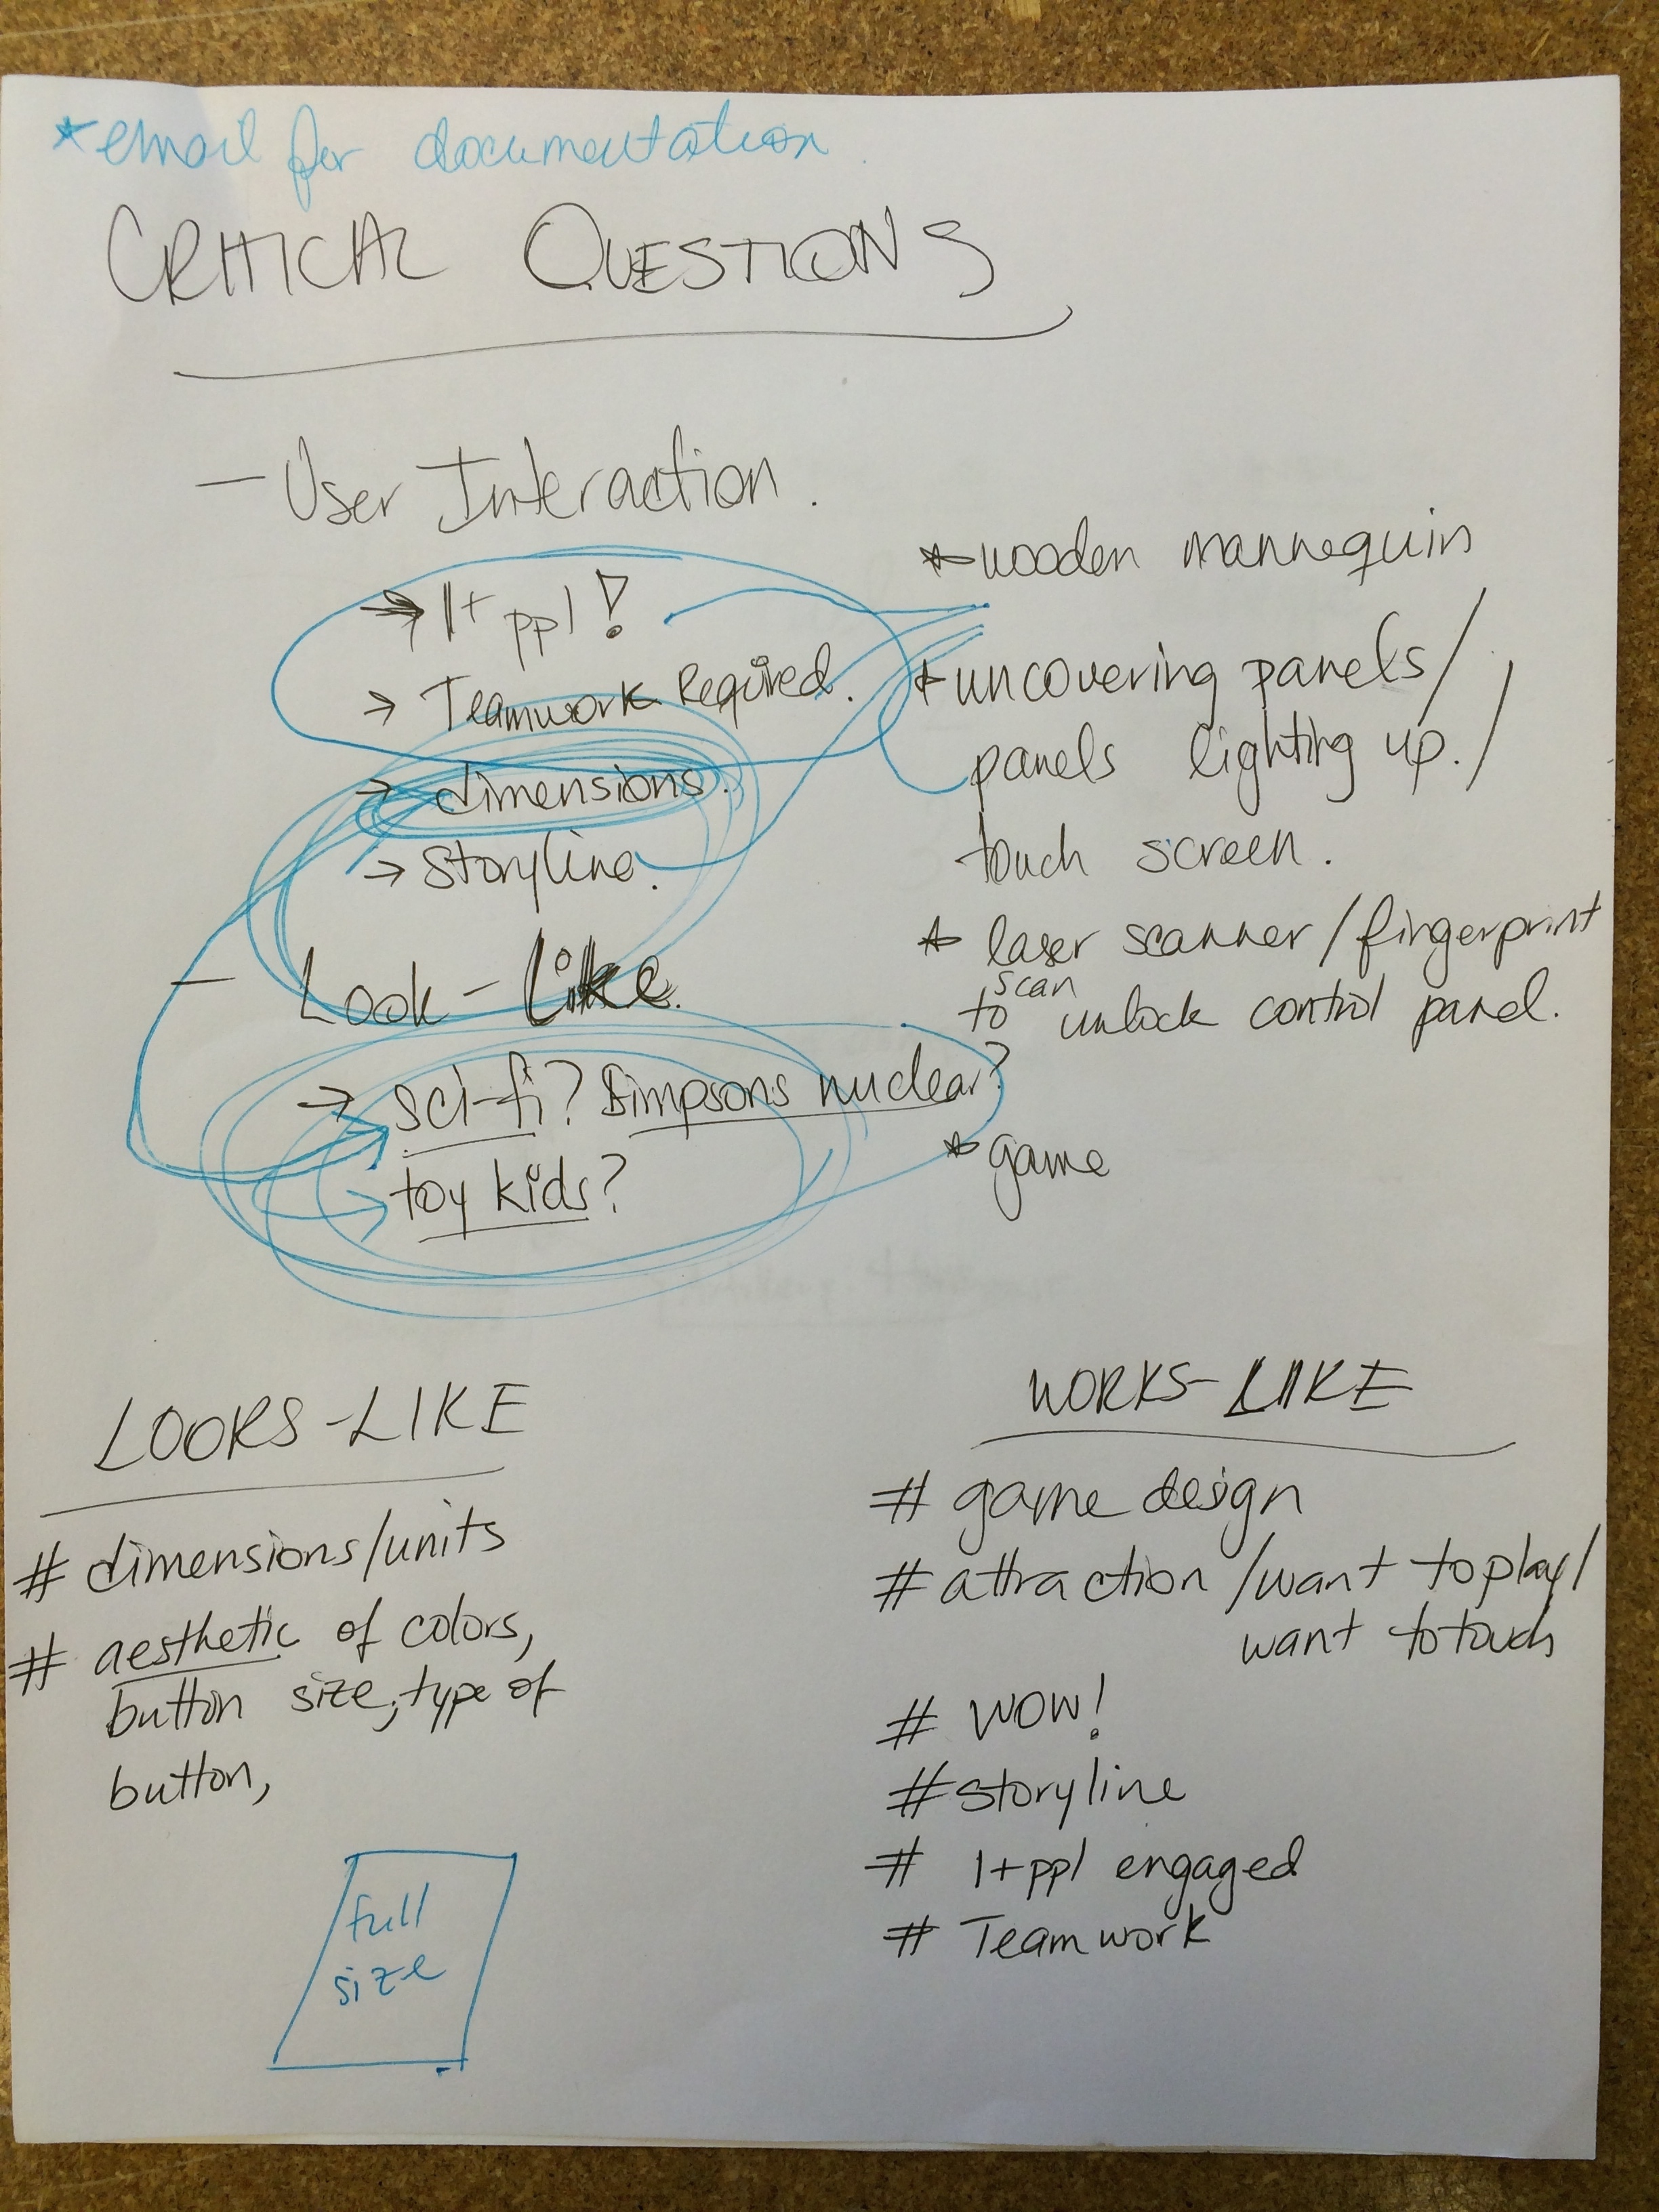 *email for documentation.
CRITICAL QUESTIONS
- User Interaction.
→ 1+ ppl!
→ Teamwork Required.
→ dimensions.
→ storyline.
- Look-Like.
→ sci-fi? Simpsons nuclear?
→ toy kids?
* wooden mannequin
* uncovering panels/
panels lighting up./
touch screen.
* laser scanner/fingerprint
scan
to unlock control panel.
* game
LOOKS-LIKE
# dimensions/units
# aesthetic of colors,
button size, type of
button,
full
size
WORKS-LIKE
# game design
# attraction/want to play/
want to touch
# WOW!
# storyline
# 1+ppl engaged
# Teamwork